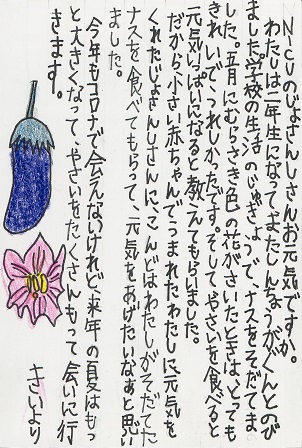 Nicuのじょさんしさんお元気ですか。
わたしは二年生になってまたしんちょうがぐんとのび
ました。学校の生活のじゅぎょうで、ナスをそだてま
した。五月にむらさき色の花がさいたときは、とても
きれいで、うれしかったです。そしてやさいを食べると
元気いっぱいになると教えてもらいました。
だから、小さい赤ちゃんでうまれたわたしに元気を
くれたじょさんしさんに、こんどはわたしがそだてた
ナスを食べてもらって、元気をあげたいなぁと思い
ました。
今年もコロナで会えないけれど、来年の夏はもっ
と大きくなって、やさいをたくさんもって会いに行
きます。
さいより